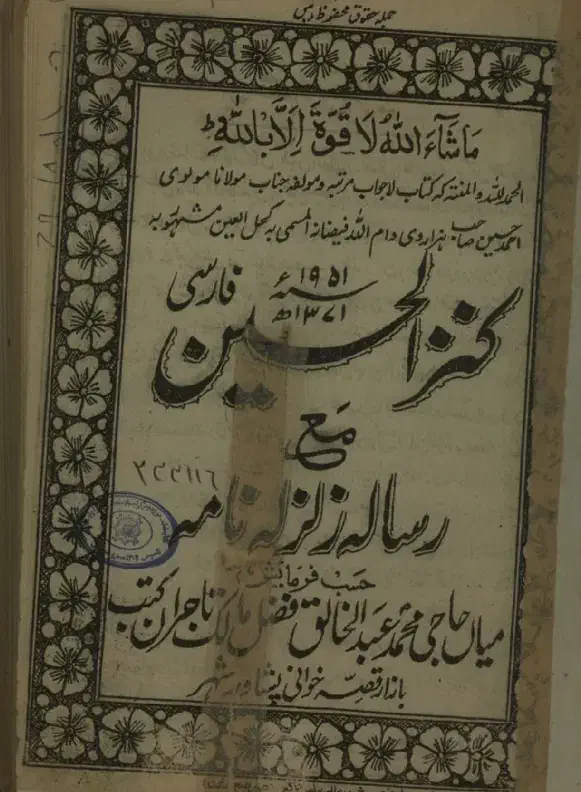 جملہ حقوق محفوظ ہیں
مَا شَآءَ اللّٰهُ لَا قُوَّةَ اِلَّا بِاللّٰهِ ط
الحمد للہ والمنتہ کہ کتاب لاجواب مرتبہ و مولفہ جناب مولانا مولوی
احمد حسین صاحب ہزاروی دام اللہ فیضانہ المسمی بہ کحل العین مشہور بہ
۱۹۵۱ء
سنہ
۱۳۷۱ھ
کنز الحسین فارسی
مَع
رسالہ زلزلہ نامہ
۲۴۴۱۱۶
حسب فرمایش
میاں حاجی محمد عبد الخالق فضل مالک تاجران کتب
بازار قصہ خوانی پشاور شہر